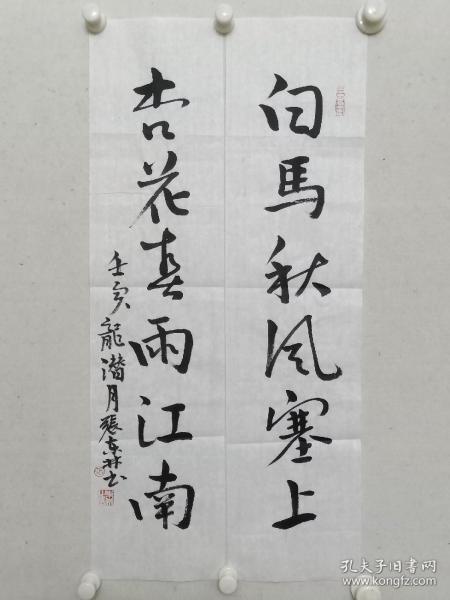 白馬秋风塞上
杏花春雨江南
壬寅龍潜月張东林书
孔夫子旧书网
www.kongfz.com